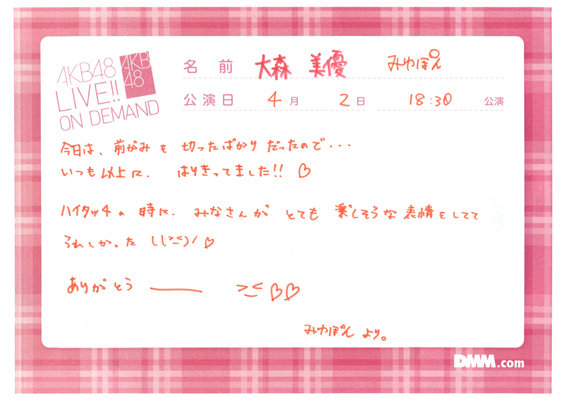 AKB48
LIVE!!
ON DEMAND
AKB
48
名前 大森 美優 みゆぽん
公演日 4月 2日 18:30 公演
今日は、前がみも 切ったばかり だったので・・・
いつも以上に、はりきってました!! ♡
ハイタッチの 時に、みなさんが とても 楽しそうな 表情をしてて
うれしかった \(^^)/ ♡
ありがとう —— ><♡♡
みゆぽん より。
DMM.com